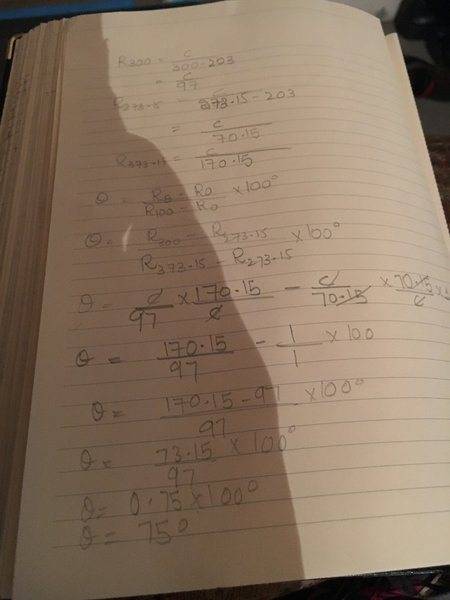 R300 = c / 300-203
= c / 97
R273.15 = c / 273.15 - 203
= c / 70.15
R373.15 = c / 170.15
θ = Rθ - R0 / R100 - R0 × 100°
θ = R300 - R273.15 / R373.15 - R273.15 × 100°
θ = c / 97 × 170.15 / c - c / 70.15 × 70.15 / c ×
θ = 170.15 / 97 - 1 / 1 × 100
θ = 170.15 - 97 / 97 × 100°
θ = 73.15 / 97 × 100°
θ = 0.75 × 100°
θ = 75°